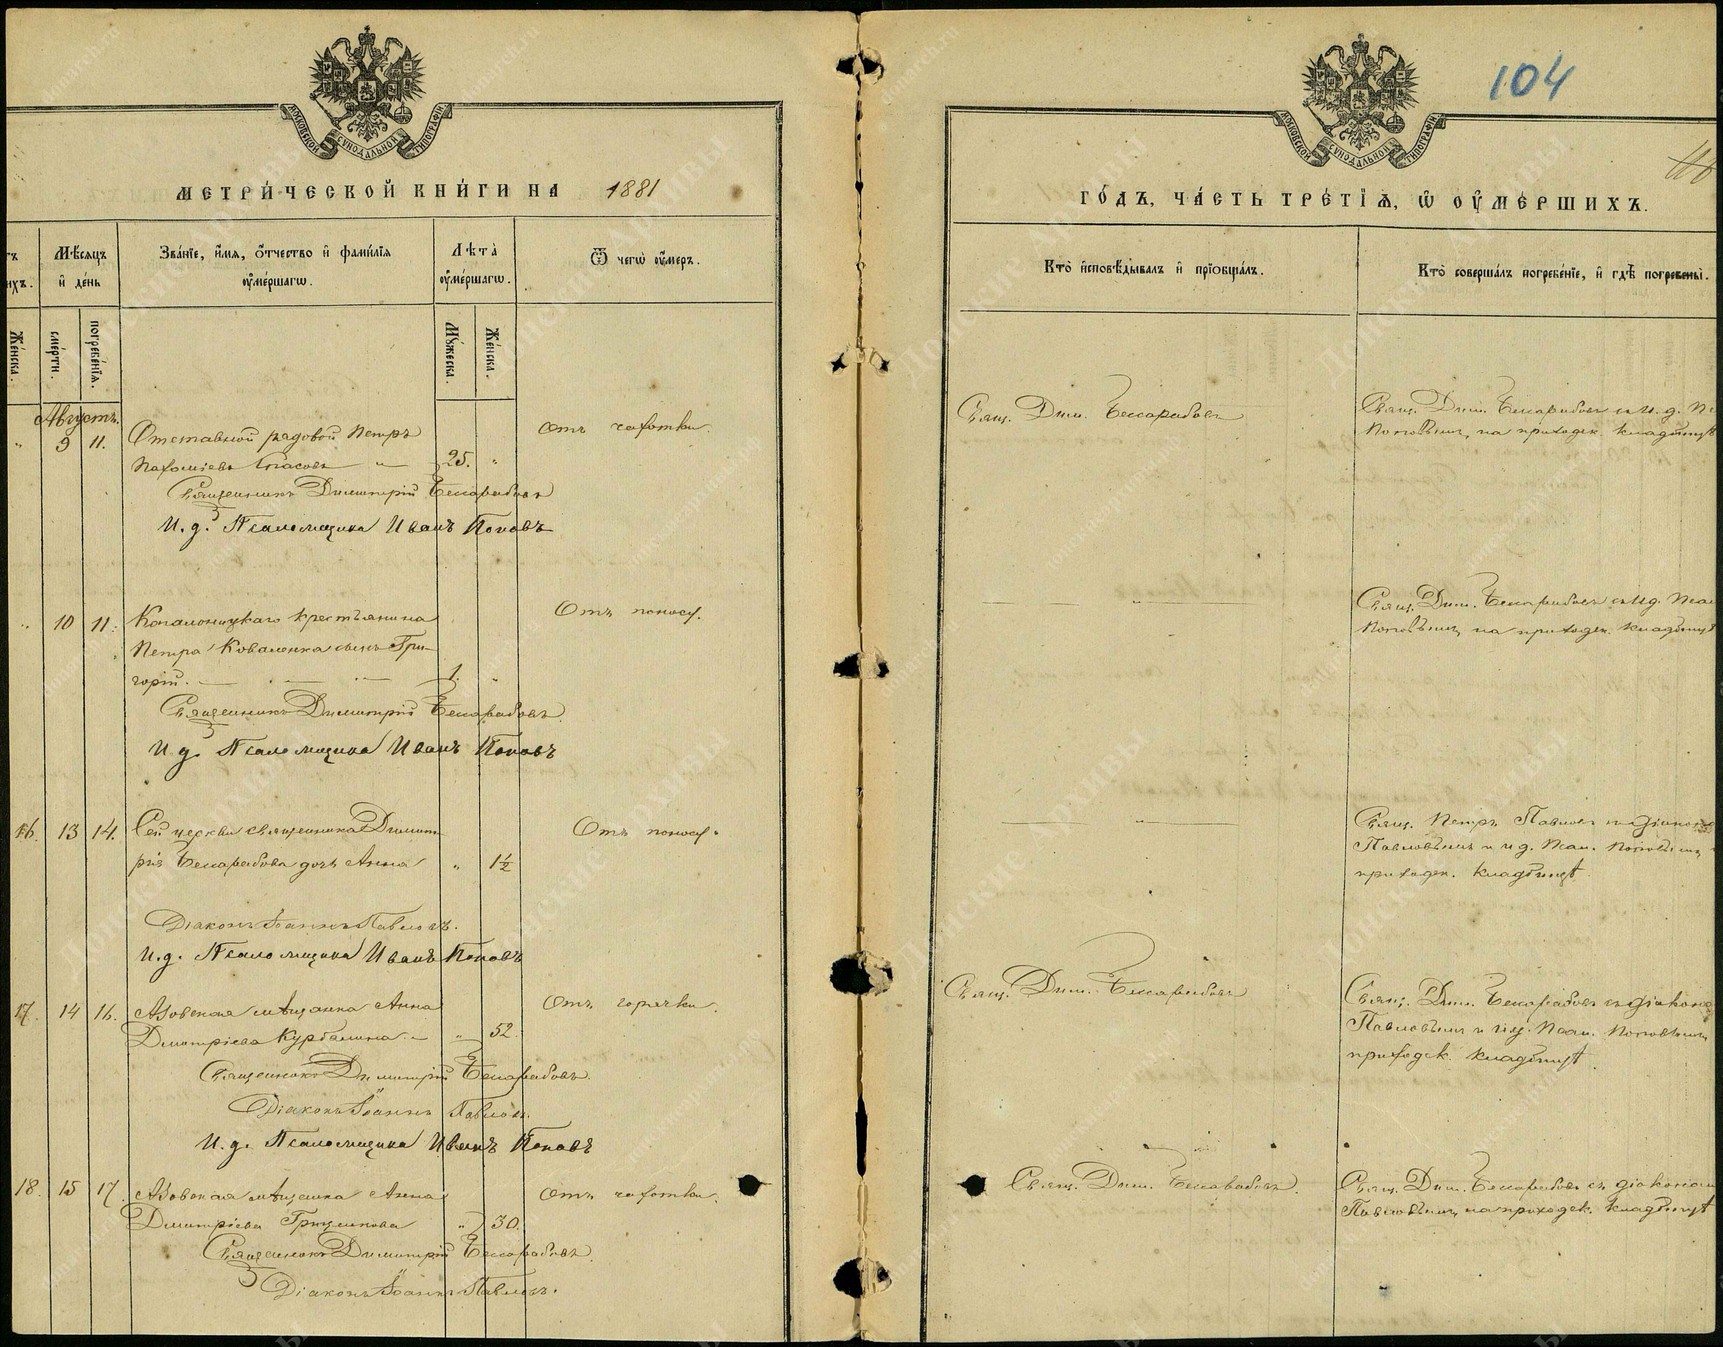 МОСКОВСКОЙ СѴНОДАЛЬНОЙ ТИПОГРАФІИ
МЕТРИ́ЧЕСКОЙ КНИ́ГИ НА 1881
Мѣ́сяцъ и де́нь
Зва́нїе, и́мя, о́тчество и фами́лїя ᲂумершагѡ.
Лѣ́та ᲂумершагѡ.
Ѿ чегѡ̀ ᲂу́меръ.
Же́нска.
сме́рти.
погребе́нїя.
Мꙋ́жеска.
Же́нска.
Августъ.
9 11. Отставной рядовой Петръ
Пахоміевъ Спасовъ 25. „
Отъ чахотки.
Священникъ Димитрій Бессарабовъ
И. д. Псаломщика Иванъ Поповъ
„ 10 11. крестьянина
Петра Коваленка сынъ Гри-
горій. 1. „
Отъ поносу.
Священникъ Димитрій Бессарабовъ.
И д. Псаломщика Иванъ Поповъ
16. 13 14. Сей церкви священника Димит
рія Бессарабова дочь Анна „ 1½
Отъ поносу.
Діаконъ Іоаннъ Павловъ.
И. д. Псаломщика Иванъ Поповъ
17. 14 16. Азовская мѣщанка Анна
Дмитріева „ 52.
Отъ горячки.
Священникъ Димитрій Бессарабовъ.
Діаконъ Іоаннъ Павловъ.
И. д. Псаломщика Иванъ Поповъ
18. 15 17. Азовская мѣщанка Анна
Дмитріева Гриценкова „ 30.
Отъ чахотки.
Священникъ Димитрій Бессарабовъ.
Діаконъ Іоаннъ Павловъ.
104
МОСКОВСКОЙ СѴНОДАЛЬНОЙ ТИПОГРАФІИ
ГО́ДЪ, ЧА́СТЬ ТРЕ́ТЇѦ, Ѡ҆ ОУ҆МЕ́РШИХЪ.
Кто̀ и҆сповѣ́дывалъ и҆ прїѡбща́лъ.
Кто̀ соверша́лъ погребе́нїе, и҆ гдѣ̀ погребены̀.
Свящ. Дим. Бессарабовъ
Свящ. Дим. Бессарабовъ съ и. д.
Поповымъ, на приходск. кладбищѣ
Свящ. Дим. Бессарабовъ съ и д.
Поповымъ на приходск. кладбищѣ
Свящ. Петръ Павловъ съ діакон
Павловымъ и и д. Псал. Поповымъ
приходск. кладбищѣ.
Свящ. Дим. Бессарабовъ
Свящ. Дим. Бессарабовъ съ діакон
Павловымъ и и д. Псал. Поповымъ
приходск. кладбищѣ.
Свящ. Дим. Бессарабовъ.
Свящ. Дим. Бессарабовъ съ діакономъ
Павловымъ, на приходск. кладбищѣ
Донские Архивы
donarch.ru